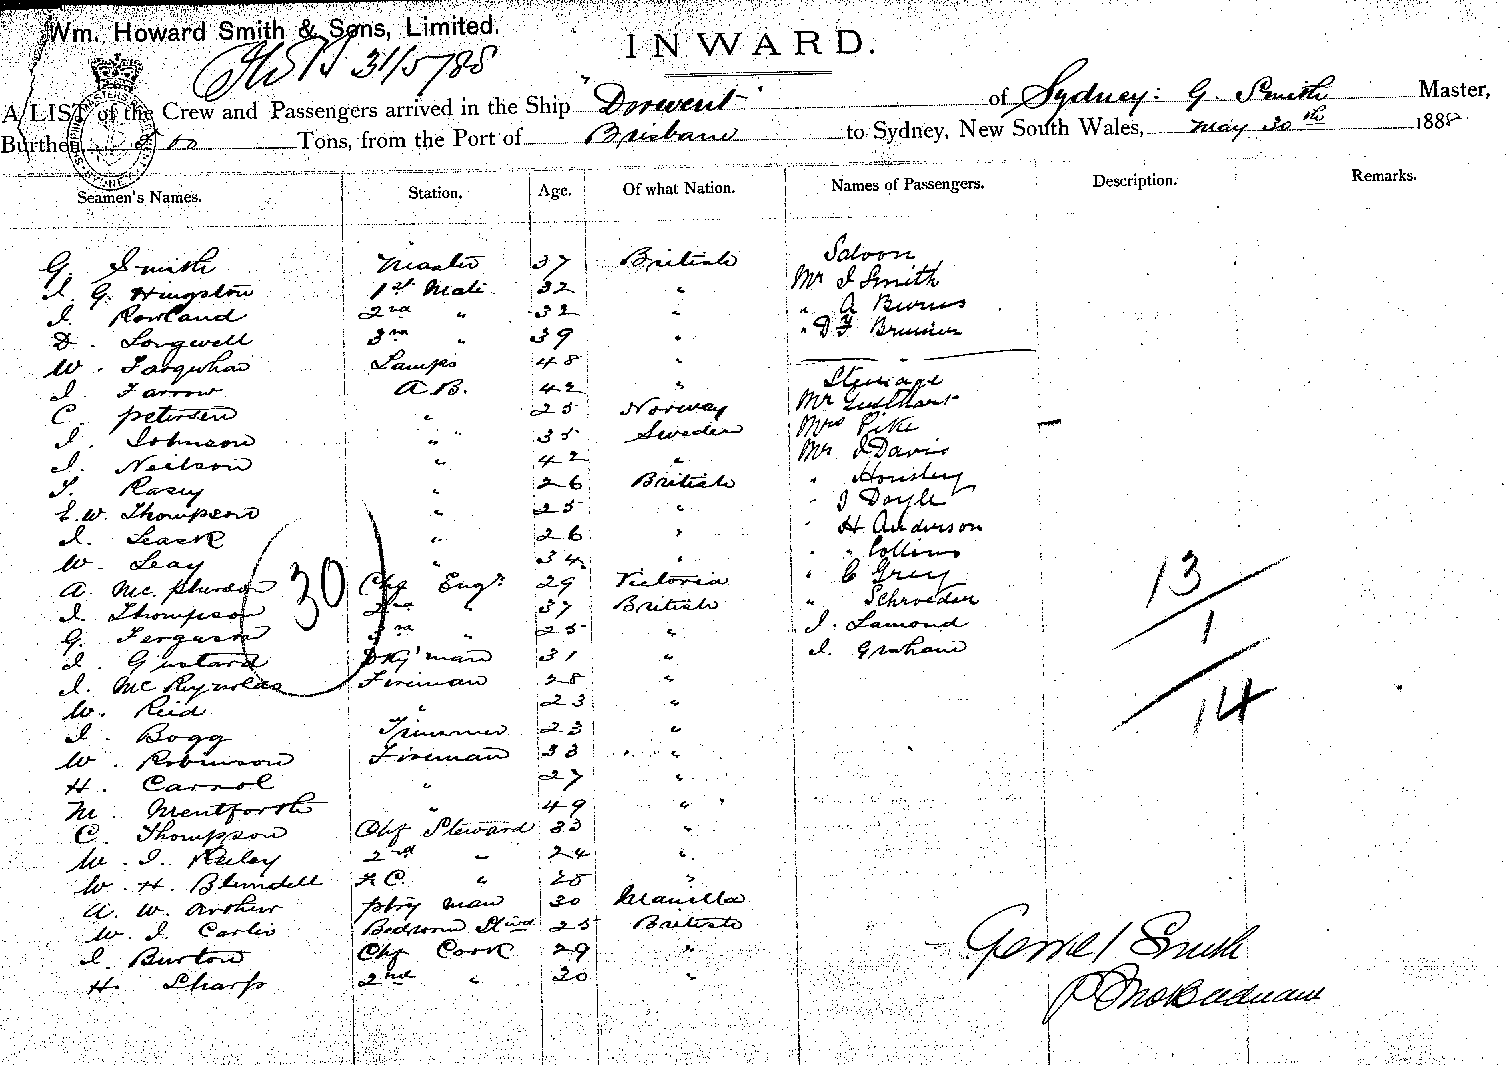 Wm. Howard Smith & Sons, Limited.
INWARD.
31/5/88
A LIST of the Crew and Passengers arrived in the Ship "Derwent" of Sydney: G. Smith Master,
Burthen Tons, from the Port of Brisbane to Sydney, New South Wales, May 30th 1888
Seamen's Names. Station. Age. Of what Nation. Names of Passengers. Description. Remarks.
G. Smith Master 37 British Saloon
J. G. Hingston 1st Mate 32 " Mr J Smith
J. Rowland 2nd " 32 " " A Burns
D. Longwell 3rd " 39 " " D F
W. Farquhar Lamps 48 "
J. Farrow A.B. 42 " Steerage
C. Petersen " 25 Norway Mr
J. Johnson " 35 Sweden Mrs Pike
J. Neilson " 42 " Mr J Davis
T. Rasey " 26 British "
E. W. Thompson " 25 " " J Doyle
J. Leask " 26 " " H Anderson
W. Leay " 34 " " " Collins
A. McPherson Chf Engr 29 Victoria " C Grey
J. Thompson 2nd " 37 British " Schroeder
G. Ferguson 3rd " 25 " J. Lamond
J. Gustard Dky man 31 " J. Graham
J. McReynolds Fireman 28 "
W. Reid " 23 "
J. Bogg Trimmer 23 "
W. Robinson Fireman 33 "
H. Carrol " 27 "
M. Mentforth " 49 "
C. Thompson Chf Steward 33 "
W. J. Kelley 2nd " 24 "
W. H. Blundell F.C. " 25 "
A. W. Arthur Ptry man 30 Manilla
W. J. Carlis Bedroom Stwd 25 British
J. Burton Chf Cook 29 "
H. Sharp 2nd " 30 "
30
13
1
14
Smith